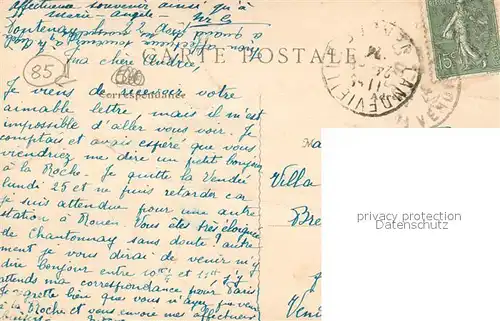 affectueux souvenir ainsi qu'à
Marie-Angèle
Fontenay 22
CARTE POSTALE
85
ma chère Andrée
Correspondance
Je viens de recevoir votre
aimable lettre, mais il m'est
impossible d'aller vous voir. Je
comptais et avais espéré que vous
viendriez me dire un petit bonjour
à la Roche. Je quitte la Vendée
lundi 25 et ne puis retarder car
je suis attendue pour une autre
station à Rouen. Vous êtes très éloignée
de Chantonnay sans doute? autre
ment je vous dirai de venir m'y
dire bonjour entre 10h 7 et 11h
attends ma correspondance pour Paris
Je regrette bien que vous n'ayez pu venir
à la Roche et vous envoie mes affectueux
LANDEVIEILLE
15
Villa
Bre
Ven
privacy protection
Datenschutz